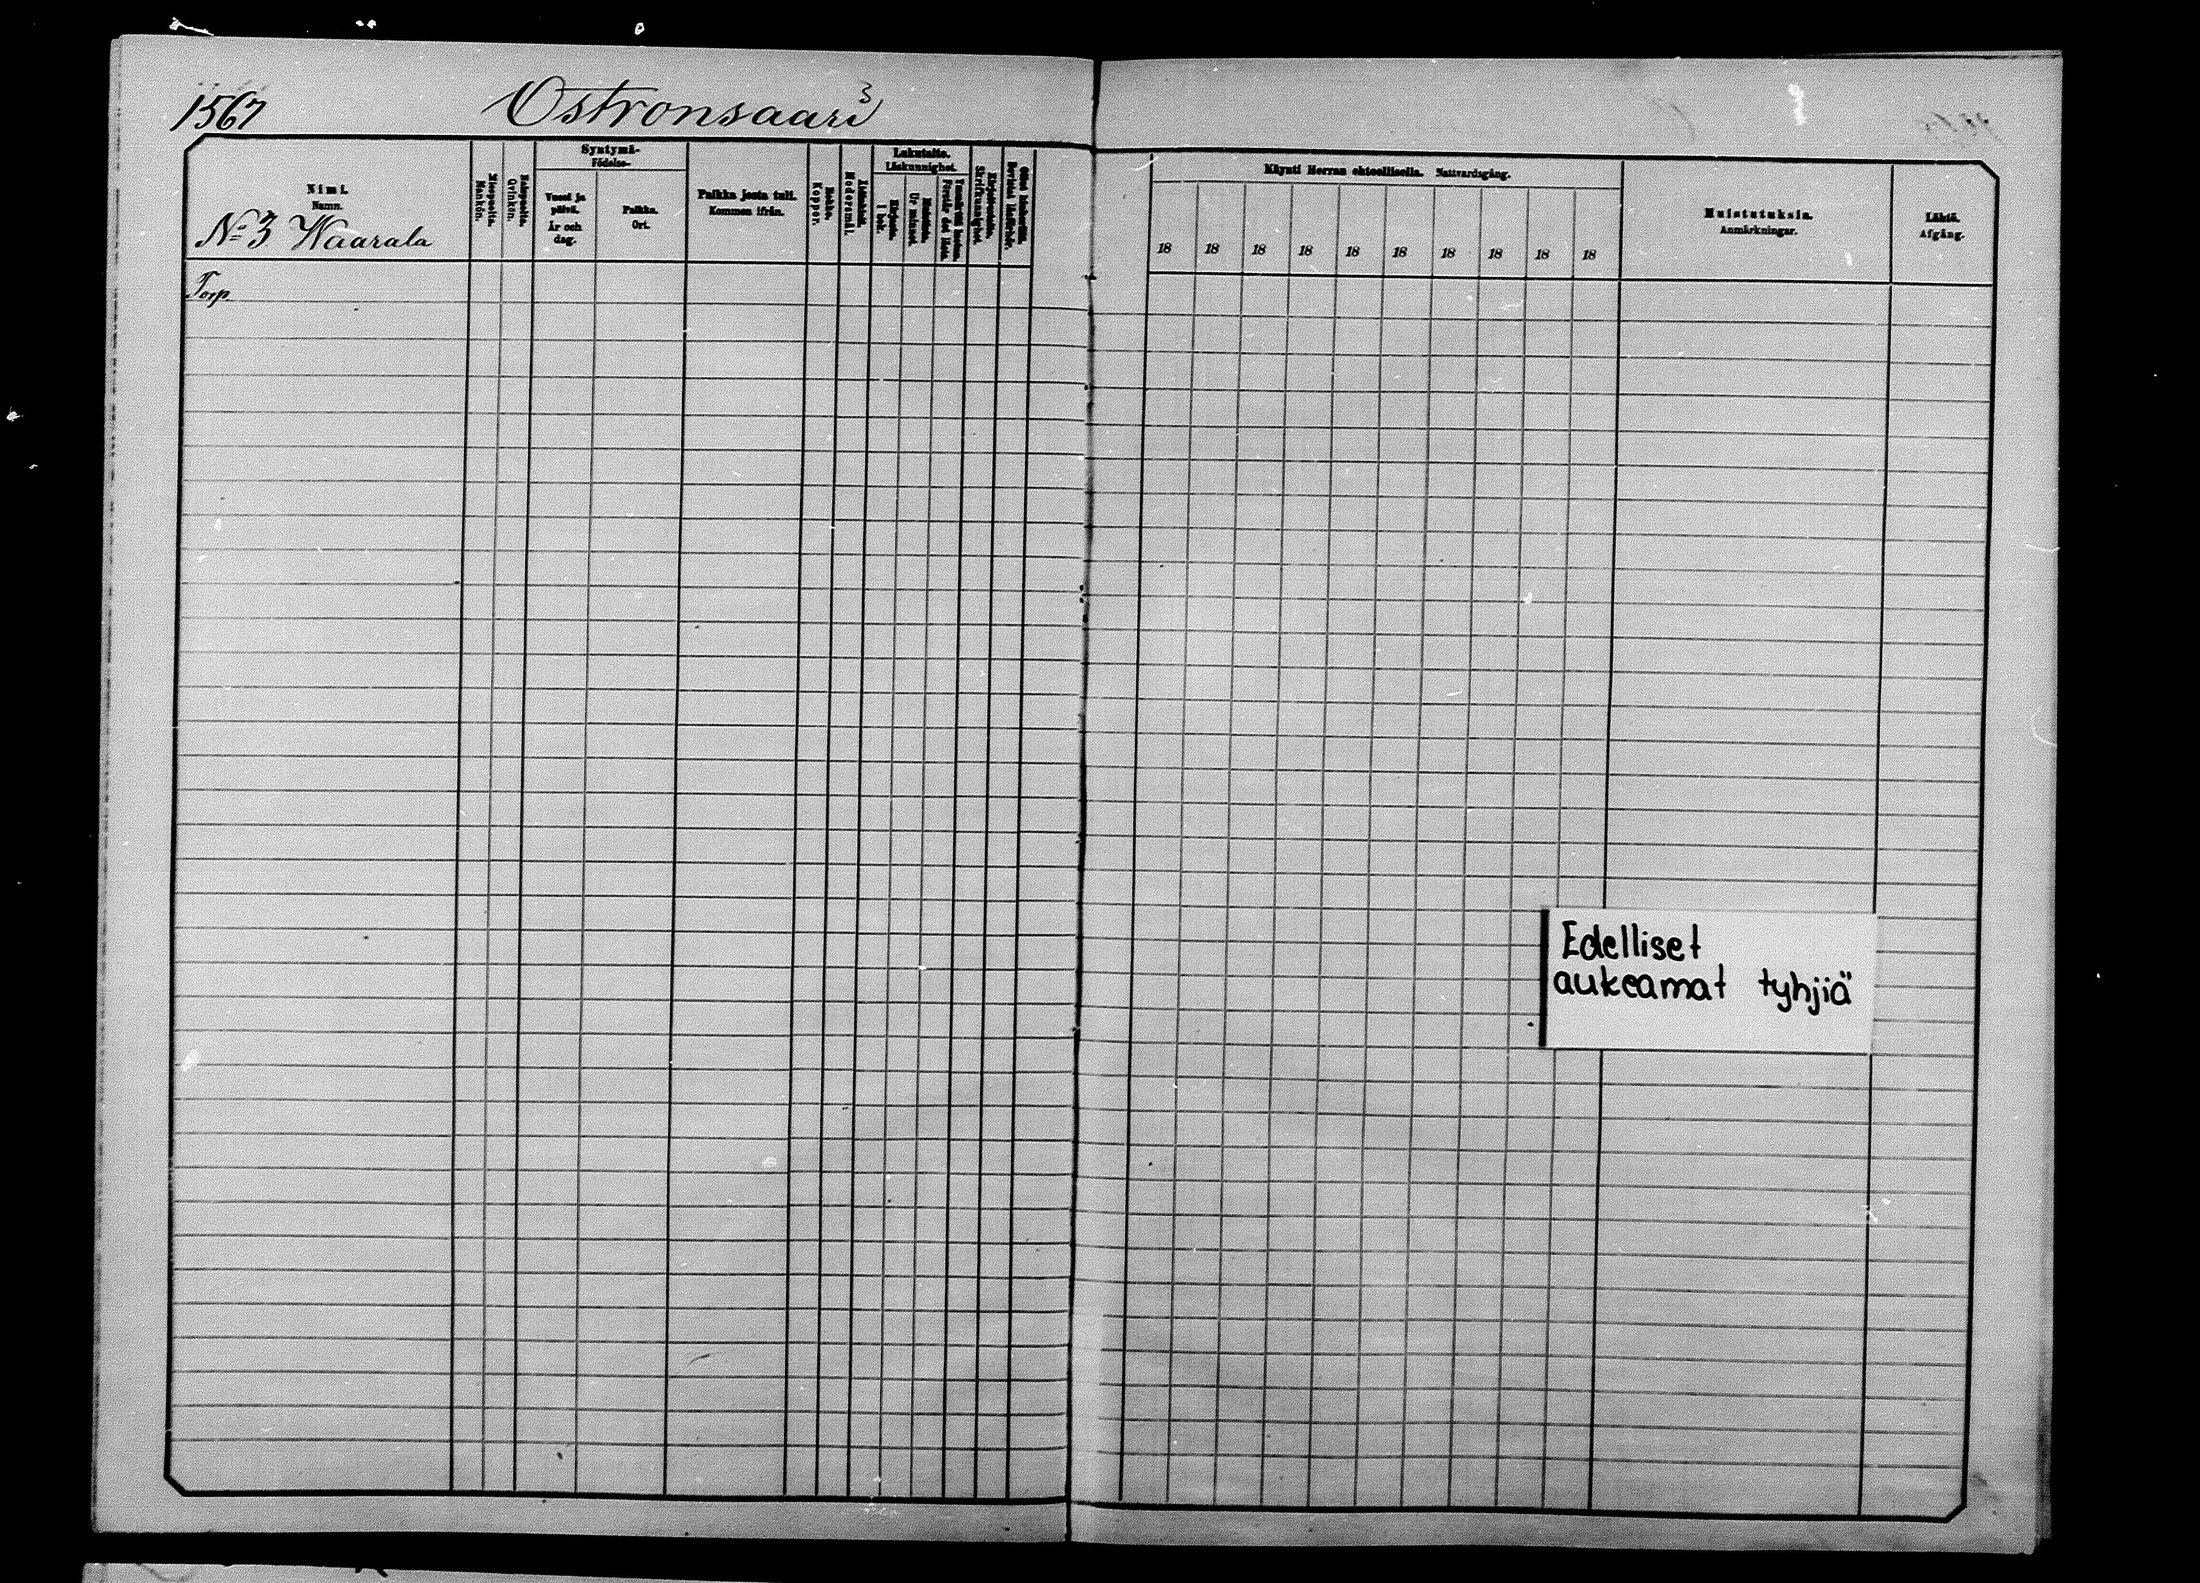 1567
Ostronsaari 3
Nimi.
Namn.
No 3 Waarala
Miespuolia.
Mankön.
Qvinkön.
Syntymä-
Födelse-
Vuosi ja päivä.
År och dag.
Paikka.
Ort.
Paikka josta tuli.
Kommen ifrån.
Rokko.
Koppor.
Modersmål.
Lukutaito.
Läskunnighet.
Kirjasta.
I bok.
Ur minnet.
Förstår det lästa
Kirjoitustaito.
Skrifkunnighet.
Torp
Käynti Herran ehtoollisella. Nattvardsgång.
18 18 18 18 18 18 18 18 18 18
Muistutuksia.
Anmärkningar.
Lähtö.
Afgång.
Edelliset
aukeamat tyhjiä